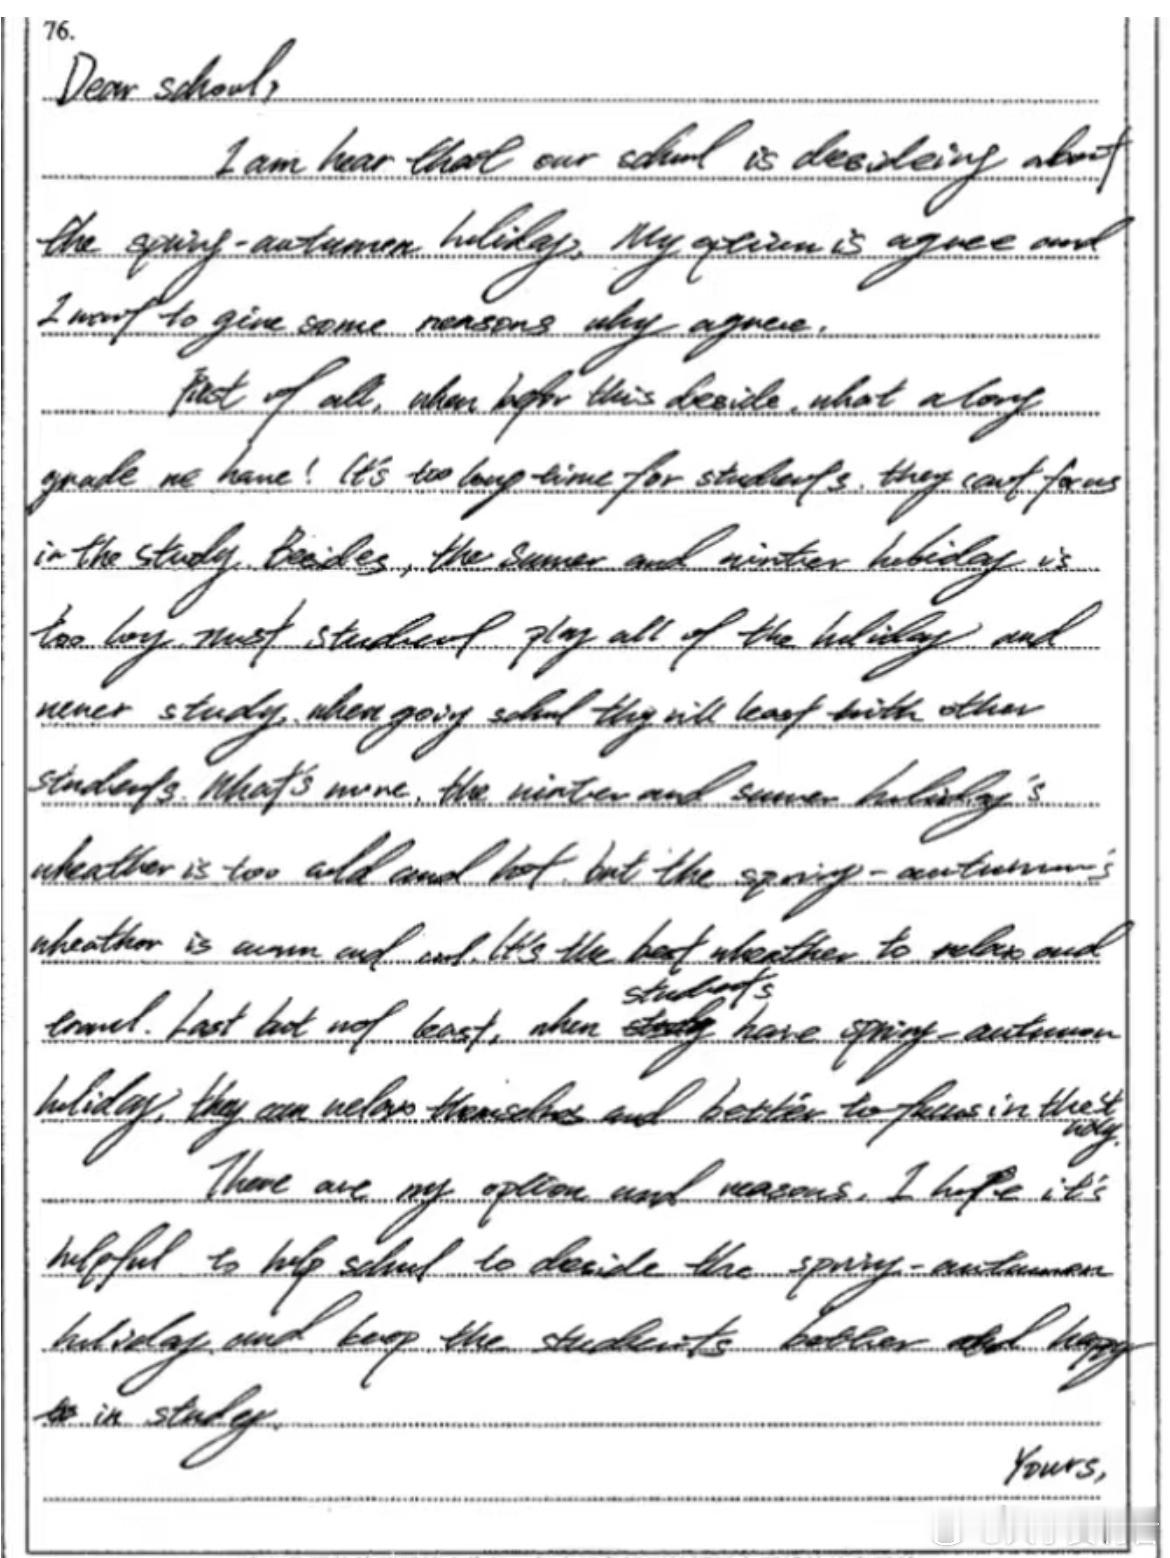 76.
Dear school,
I am hear that our school is decideing about
the spring-autumen holiday, My option is agree and
I want to give some reasons why agree.
First of all, when befor this deside, what a long
grade we have! It's too long time for students. they can't focus
in the study. Besides, the Sumer and winter holiday is
too long. most student play all of the holiday and
never study. when going school they will least with other
students. What's more, the winter and sumer holiday's
wheather is too cold and hot. but the spring-autumn's
wheather is warm and cool. It's the best wheather to relax and
travel. Last but not least, when students have spring-autumn
holiday, they can relax themselves and better to focus in the st
udy.
There are my option and reasons. I hope it's
helpful to help school to deside the spring-autumen
holiday and keep the students better and happy
in study.
Yours,